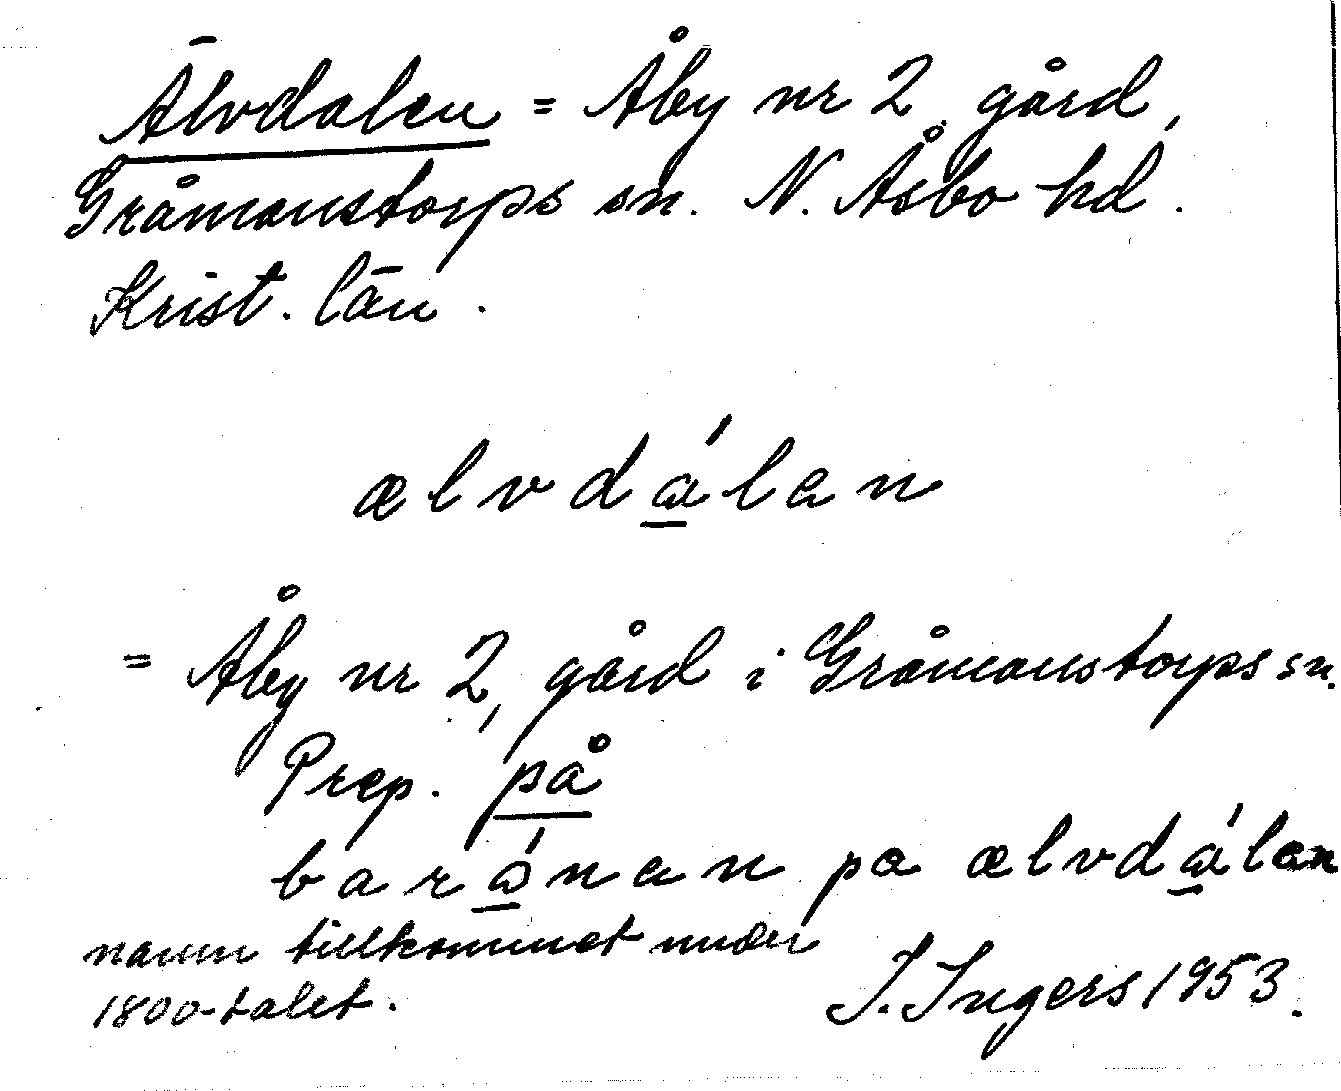 Älvdalen = Åby nr 2, gård,
Gråmanstorps sn. N. Åsbo hd.
Krist. län.
ælvdálan
= Åby nr 2, gård i Gråmanstorps sn.
Prep. på
barónan pa ælvdálan
namn tillkommet under
1800-talet.
I. Ingers 1953.